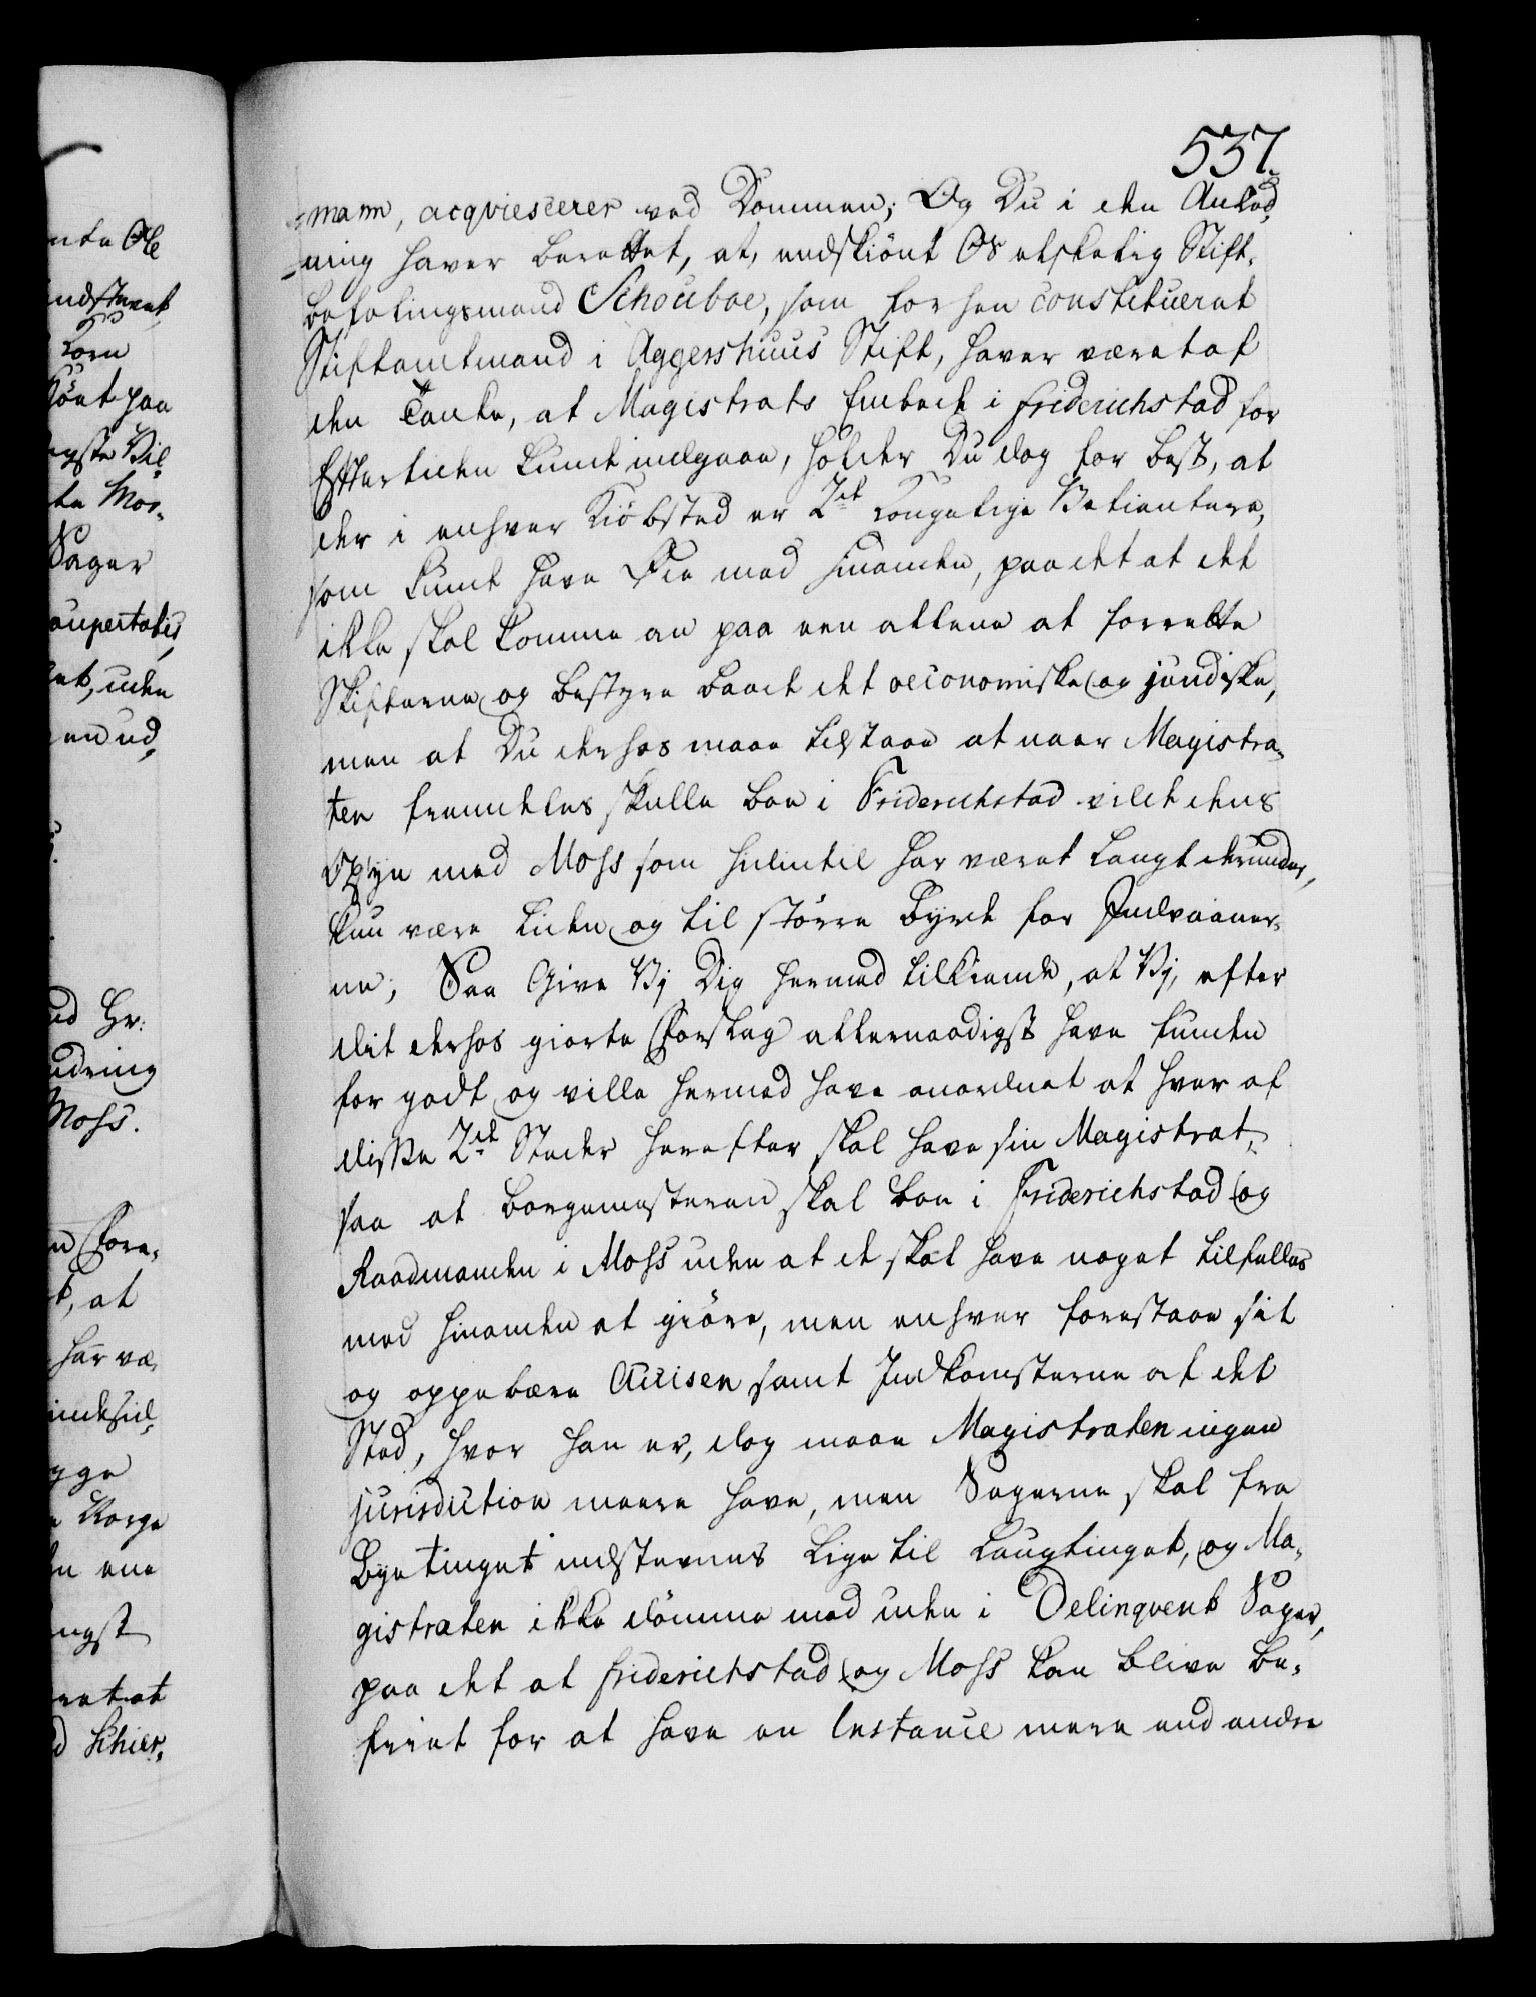 537.
-mann, acqviescerer ved Dommen; Og Du i den Anled,
-ning haver berettet, at, endskiönt Os elskelig Stift-
befalingsmand Schouboe, som forhen constitueret
Stiftamtmand i Aggershuus Stift, haver været af
den Tanke, at Magistrats Embede i Friderichstad for
Efftertiden kunde indgaae, holder Du dog for best, at
der i enhver Kiöbsted er 2de Kongelige Betientere,
som kunde have Øie med hinanden, paa det at det
ikke skal komme an paa een allene at forrette
Skifterne og bestyre baade det oeconomiske og juridiske,
men at Du derhos maae tilstaae at naar Magistra-
ten fremdeles skulle boe i Friderichstad vilde dens
Opsyn med Moss som hidindtil har været langt derunder,
kun være liden og til större Byrde for Indvaaner-
ne; Saa Give Vi Dig hermed tilkiende, at Vi, efter
dit derhos giorte Forslag allernaadigst have funden
for godt og ville hermed have anordnet at hver af
disse 2de Steder herefter skal have sin Magistrat,
saa at Borgemesteren skal boe i Friderichstad og
Raadmanden i Moss uden at de skal have noget tilfelles
med hinanden at giöre, men enhver forestaae sit
og oppebære Accisen samt Indkomsterne af det
Sted, hvor han er, dog maae Magistraten ingen
jurisdiction meere have, men Sagerne skal fra
Byetinget indstevnes lige til Laugtinget, og Ma-
gistraten ikke dömme med uden i Delinqvent Sager,
paa det at Friderichstad og Moss kan blive be-
friet for at have en Instance mere end andre